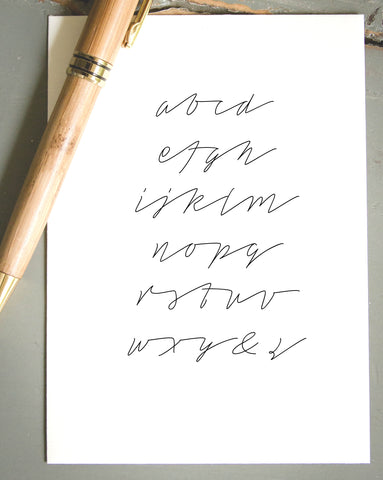 abcd
efgh
ijklm
nopq
rstuv
wxy&z